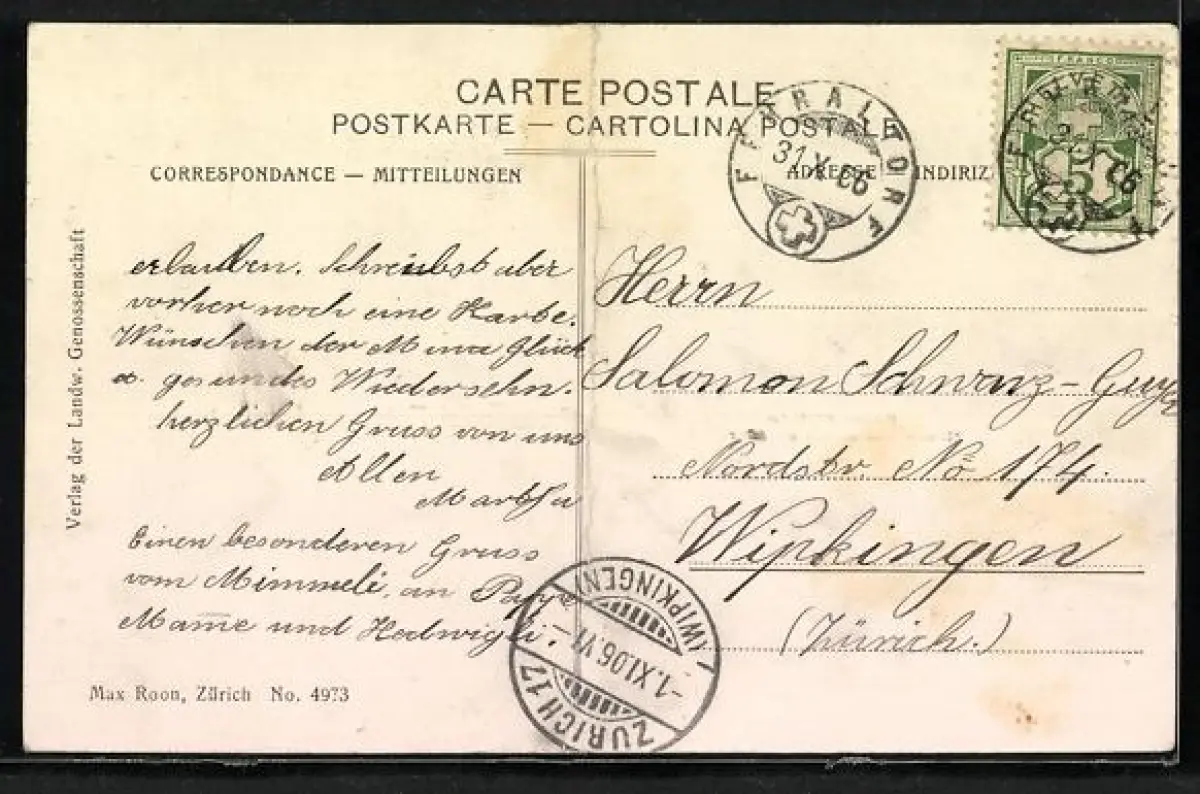 CARTE POSTALE
POSTKARTE — CARTOLINA POSTALE
CORRESPONDANCE — MITTEILUNGEN
ADRESSE INDIRIZ
31.X.06
FRANCO
5
erlauben. Schreibst aber
vorher noch eine Karte.
Wünschen der Glück
u. gesundes Wiedersehn.
herzlichen Gruss von uns
Allen
Martha
Einen besonderen Gruss
vom Mimmeli, an
Mame und Hedwigli.
Herrn
Salomon Schwarz-
Nordstr. No 174.
Wipkingen
(Zürich.)
ZÜRICH 17
-1.XI.06.VI-
(WIPKINGEN)
Verlag der Landw. Genossenschaft
Max Roon, Zürich No. 4973